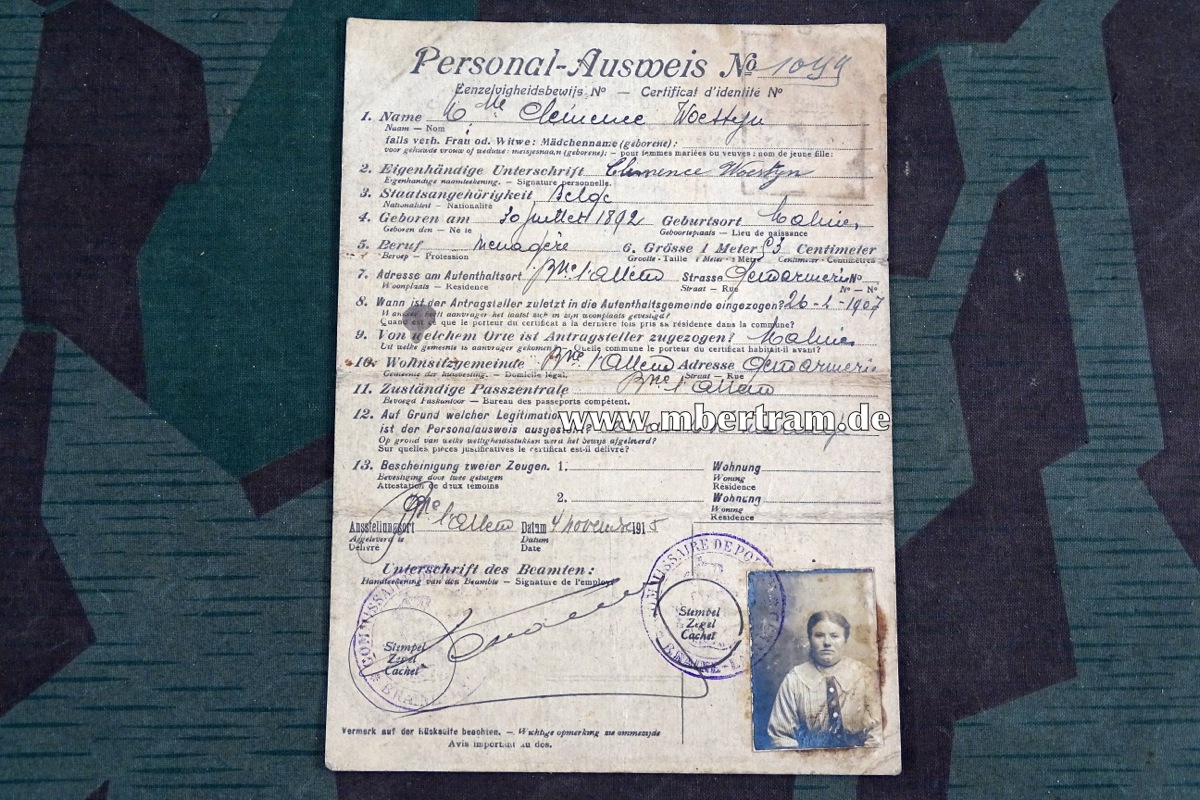 Personal-Ausweis No 1099
Eenzelvigheidsbewijs No — Certificat d'identité No
1. Name Mlle Clémence Woestyn
Naam — Nom
falls verh. Frau od. Witwe: Mädchenname (geborene):
voor gehuwde vrouw of weduwe: meisjesnaam (geborene): — pour femmes mariées ou veuves: nom de jeune fille:
2. Eigenhändige Unterschrift Clemence Woestyn
Eigenhandige naamteekening. — Signature personnelle.
3. Staatsangehörigkeit Belge
Nationaliteit — Nationalité
4. Geboren am 30 juillet 1892 Geburtsort Malines
Geboren den — Né le Geboorteplaats — Lieu de naissance
5. Beruf Menagère 6. Grösse 1 Meter 53 Centimeter
Beroep — Profession Grootte - Taille 1 Meter - 1 Mètre Centimeter - Centimètres
7. Adresse am Aufenthaltsort Bne l'alleud Strasse Gendarmerie No
Woonplaats — Residence Straat — Rue No — No
8. Wann ist der Antragsteller zuletzt in die Aufenthaltsgemeinde eingezogen? 26-2-1907
Wanneer heeft aanvrager het laatst zich in zijn woonplaats gevestigd?
Quand est-ce que le porteur du certificat a la dernière fois pris sa résidence dans la commune?
9. Von welchem Orte ist Antragsteller zugezogen? Malines
Uit welke gemeente is aanvrager gekomen? — Quelle commune le porteur du certificat habitait-il avant?
10. Wohnsitzgemeinde Bne l'alleud Adresse Gendarmerie
Gemeente der huisvesting. — Domicile légal. Straat — Rue
11. Zuständige Passzentrale Bne l'alleud
Bevoegd Paskantoor — Bureau des passeports compétent.
12. Auf Grund welcher Legitimation
www.mbertram.de
ist der Personalausweis ausgestellt?
Op grond van welke wettigheidsstukken werd het bewijs afgeleverd?
Sur quelles pièces justificatives le certificat est-il délivré?
13. Bescheinigung zweier Zeugen. 1. Wohnung
Bevestiging door twee getuigen Woning
Attestation de deux témoins Résidence
2. Wohnung
Woning
Résidence
Ausstellungsort Bne l'alleud Datum 4 novembre 1915
Afgeleverd te Datum
Délivré Date
Unterschrift des Beamten:
Handteekening van den Beambte — Signature de l'employé
COMMISSAIRE DE POL
Stempel
Zegel
Cachet
BRAINE-L
COMMISSAI
Stempel
Zegel
Cachet
BRAIN
Vermerk auf der Rückseite beachten. — Wichtige opmerking zie ommezijde
Avis important au dos.